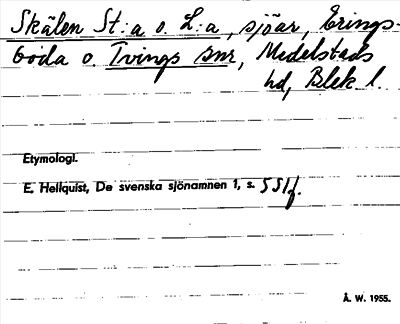 Skälen St:a o. L:a, sjöar, Erings-
boda o. Tvings snr, Medelstads
hd, Blek l.
Etymologi.
E. Hellquist, De svenska sjönamnen 1, s. 551f.
Å. W. 1955.